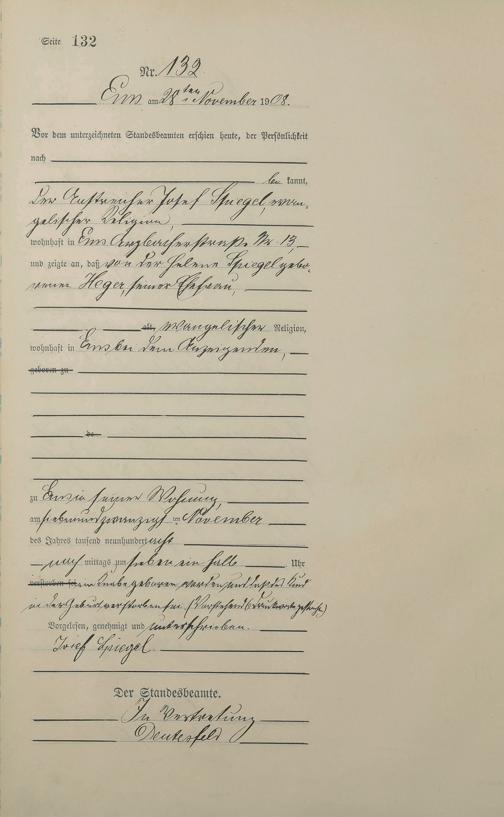 Seite 132
Nr. 132
Ems am 28ten November 1908.
Vor dem unterzeichneten Standesbeamten erschien heute, der Persönlichkeit
nach
be kannt,
der Anstreicher Josef Spiegel, evan-
gelischer Religion,
wohnhaft in Ems Arzbacherstraße Nr. 13,
und zeigte an, daß von der Helene Spiegel gebo-
renen Heger, seiner Ehefrau,
alt, evangelischer Religion,
wohnhaft in Ems bei dem Anzeigenden,
geboren zu
zu Ems in seiner Wohnung,
am siebenundzwanzigsten November
des Jahres tausend neunhundert acht
nach mittags um sieben ein halb Uhr
verstorben sei ein Knabe geboren worden und daß das Kind
in der Geburt verstorben sei (Vorstehend Druckworte gestrichen)
Vorgelesen, genehmigt und unterschrieben.
Josef Spiegel
Der Standesbeamte.
In Vertretung